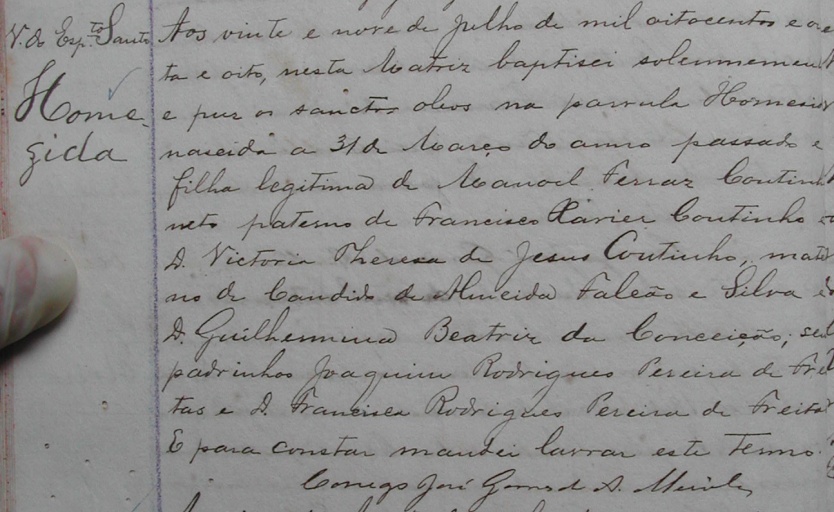 V. do Esp.to Santo
Home-
zida
Aos vinte e nove de julho de mil oitocentos e oi
ta e oito, nesta Matriz baptisei solemnemen
e puz os sanctos oleos na parvula Homesid
nascida a 31 de Março do anno passado e
filha legitima de Manoel Ferraz Coutinh
neto paterno de Francisco Xavier Coutinho
D. Victoria Thereza de Jesus Coutinho, mater
no de Candido de Almeida Falcão e Silva e
D. Guilhermina Beatriz da Conceição; seu
padrinhos Joaquim Rodrigues Pereira de Frei
tas e D. Francisca Rodrigues Pereira de Freitas
E para constar mandei lavrar este termo.
Conego José Gomes d A.